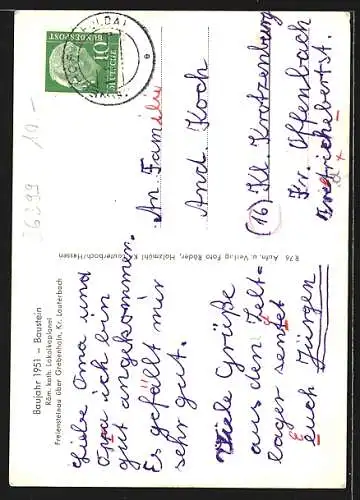 Baujahr 1951 – Baustein
Röm. kath. Lokalkaplanei
Freiensteinau über Grebenhain, Kr. Lauterbach
Liebe Oma und
Opa ich bin
gut angekommen.
Es gefällt mir
sehr gut.
Viele Grüße
aus den Zelt=
lager sentet
Euch Jürgen
R 76 Aufn. u. Verlag Foto Röder, Holzmühl Kr. Lauterbach/Hessen
10
DEUTSCHE
BUNDESPOST
An Familie
And Koch
(16) Kl. Krotzenburg
Kr. Offenbach
Friedrichebertst.
36399
10.-